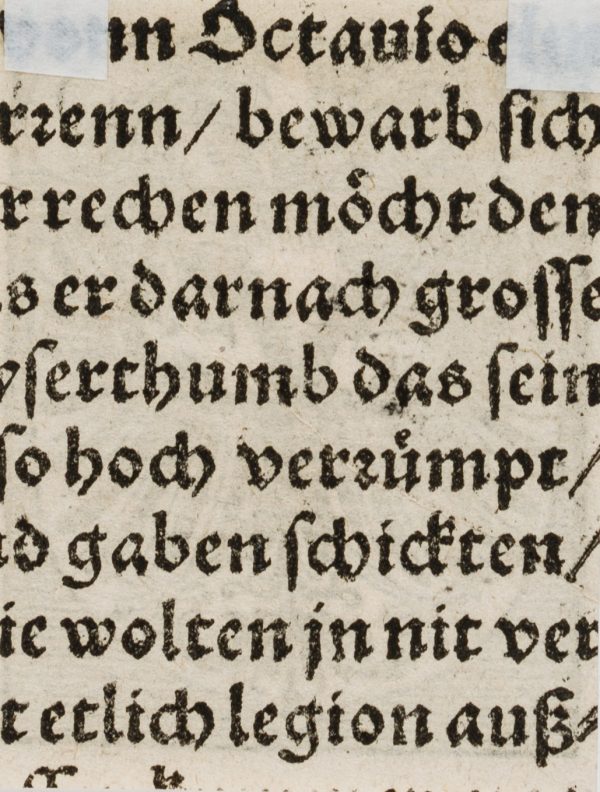 nn Octauio
rꝛenn/ bewarb ſich
r rechen moͤcht den
s er darnach groſſe
yſerthumb das ſein
ſo hoch verꝛuͤmpt/
d gaben ſchickten/
ie wolten jn nit ver
t etlich legion auß⸗